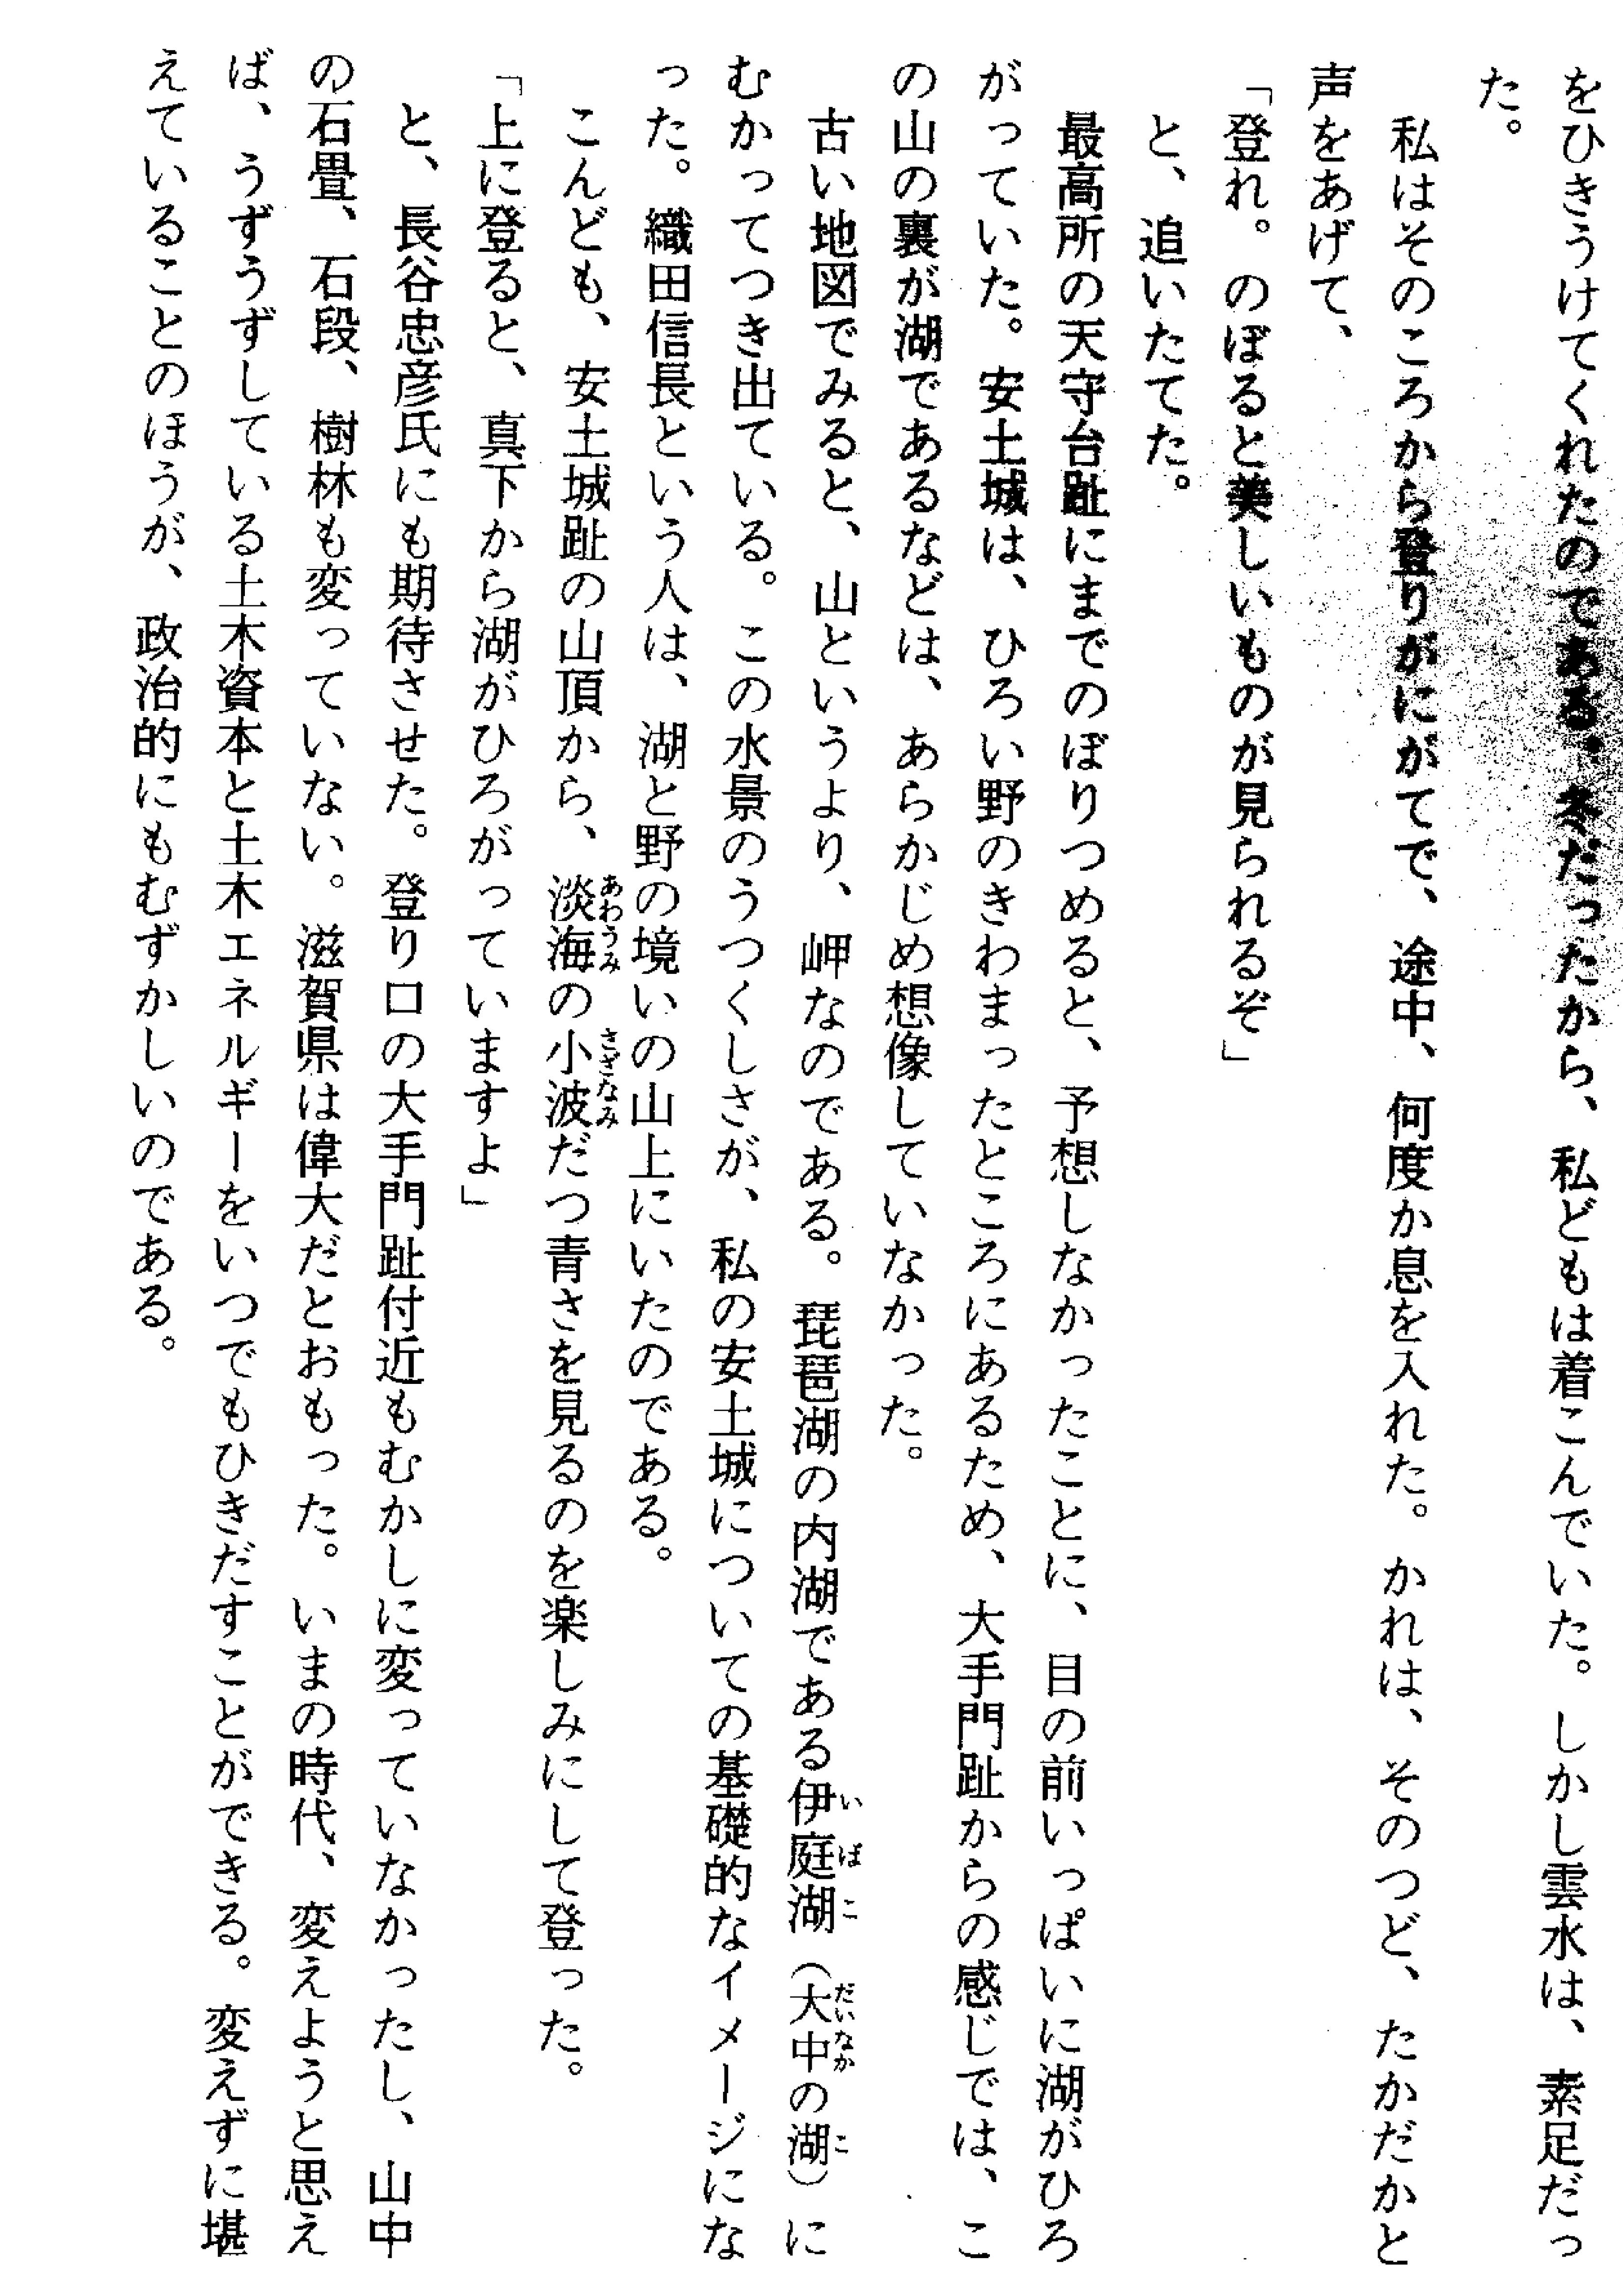 をひきうけてくれたのである。冬だったから、私どもは着こんでいた。しかし雲水は、素足だっ
た。
私はそのころから登りがにがてで、途中、何度か息を入れた。かれは、そのつど、たかだかと
声をあげて、
「登れ。のぼると美しいものが見られるぞ」
と、追いたてた。
最高所の天守台趾にまでのぼりつめると、予想しなかったことに、目の前いっぱいに湖がひろ
がっていた。安土城は、ひろい野のきわまったところにあるため、大手門趾からの感じでは、こ
の山の裏が湖であるなどは、あらかじめ想像していなかった。
古い地図でみると、山というより、岬なのである。琵琶湖の内湖である伊庭湖（大中の湖）に
むかってつき出ている。この水景のうつくしさが、私の安土城についての基礎的なイメージにな
った。織田信長という人は、湖と野の境いの山上にいたのである。
こんども、安土城趾の山頂から、淡海の小波だつ青さを見るのを楽しみにして登った。
「上に登ると、真下から湖がひろがっていますよ」
と、長谷忠彦氏にも期待させた。登り口の大手門趾付近もむかしに変っていなかったし、山中
の石畳、石段、樹林も変っていない。滋賀県は偉大だとおもった。いまの時代、変えようと思え
ば、うずうずしている土木資本と土木エネルギーをいつでもひきだすことができる。変えずに堪
えていることのほうが、政治的にもむずかしいのである。